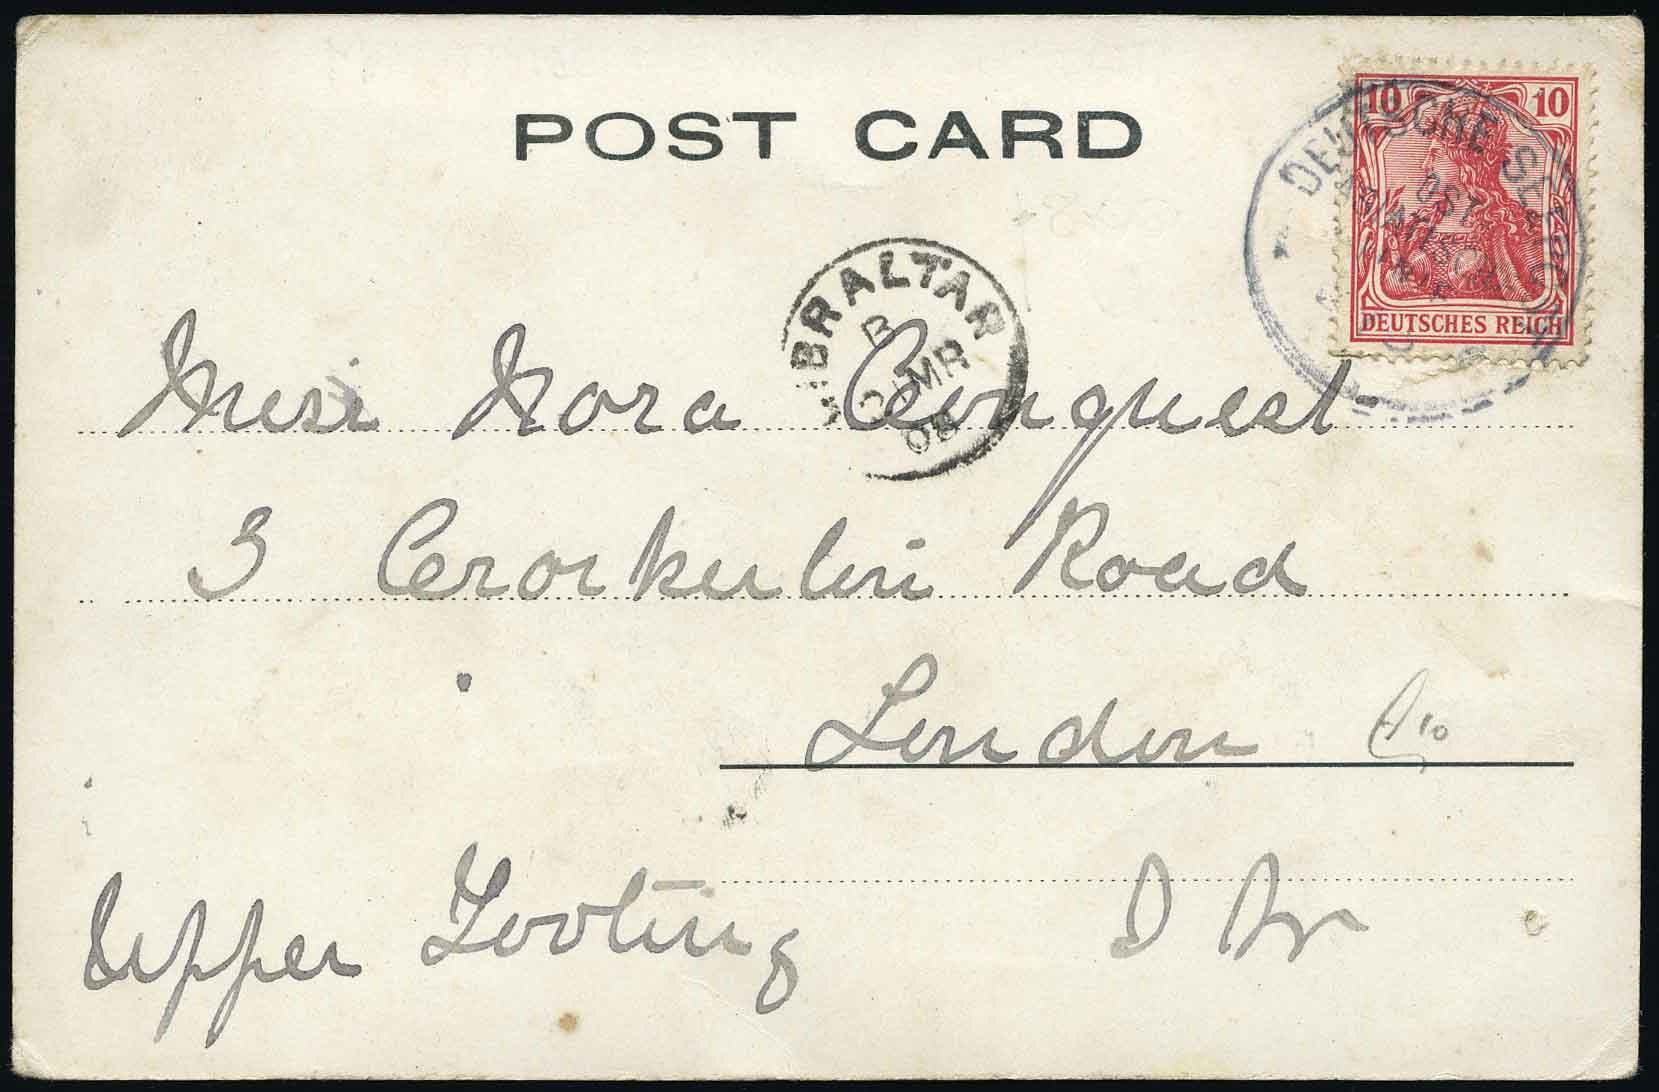 POST CARD
10 10
DEUTSCHE SEEPOST
OST
DEUTSCHES REICH
GIBRALTAR
B
MR
08
Miss Nora Conquest
3 Crockerton Road
London
Upper Tooting